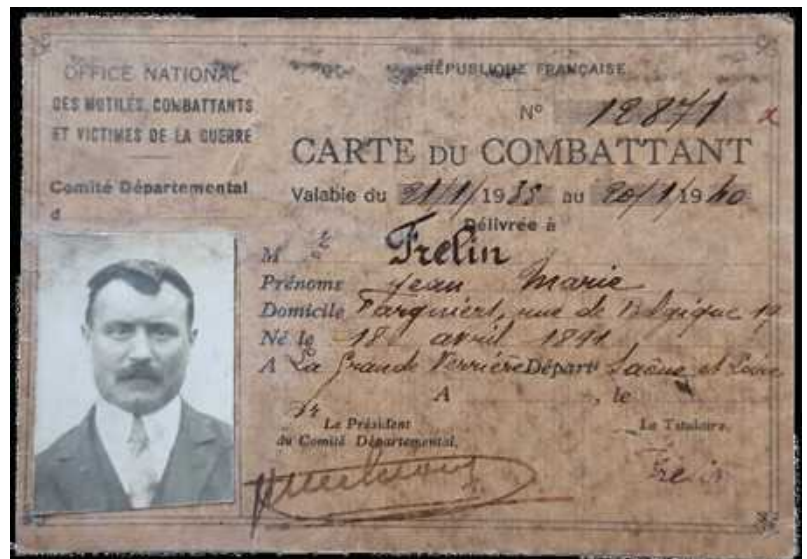 OFFICE NATIONAL
DES MUTILÉS, COMBATTANTS
ET VICTIMES DE LA GUERRE
Comité Départemental
d
RÉPUBLIQUE FRANÇAISE
N° 12871
CARTE DU COMBATTANT
Valable du 21/1/1935 au 20/1/1940
Délivrée à
M Frelin
Prénoms Jean Marie
Domicile Fargniers, rue de Belgique 19
Né le 18 avril 1891
A La Grande Verrière Départt Saône et Loire
A , le
Le Président
du Comité Départemental,
Le Titulaire,
Frelin